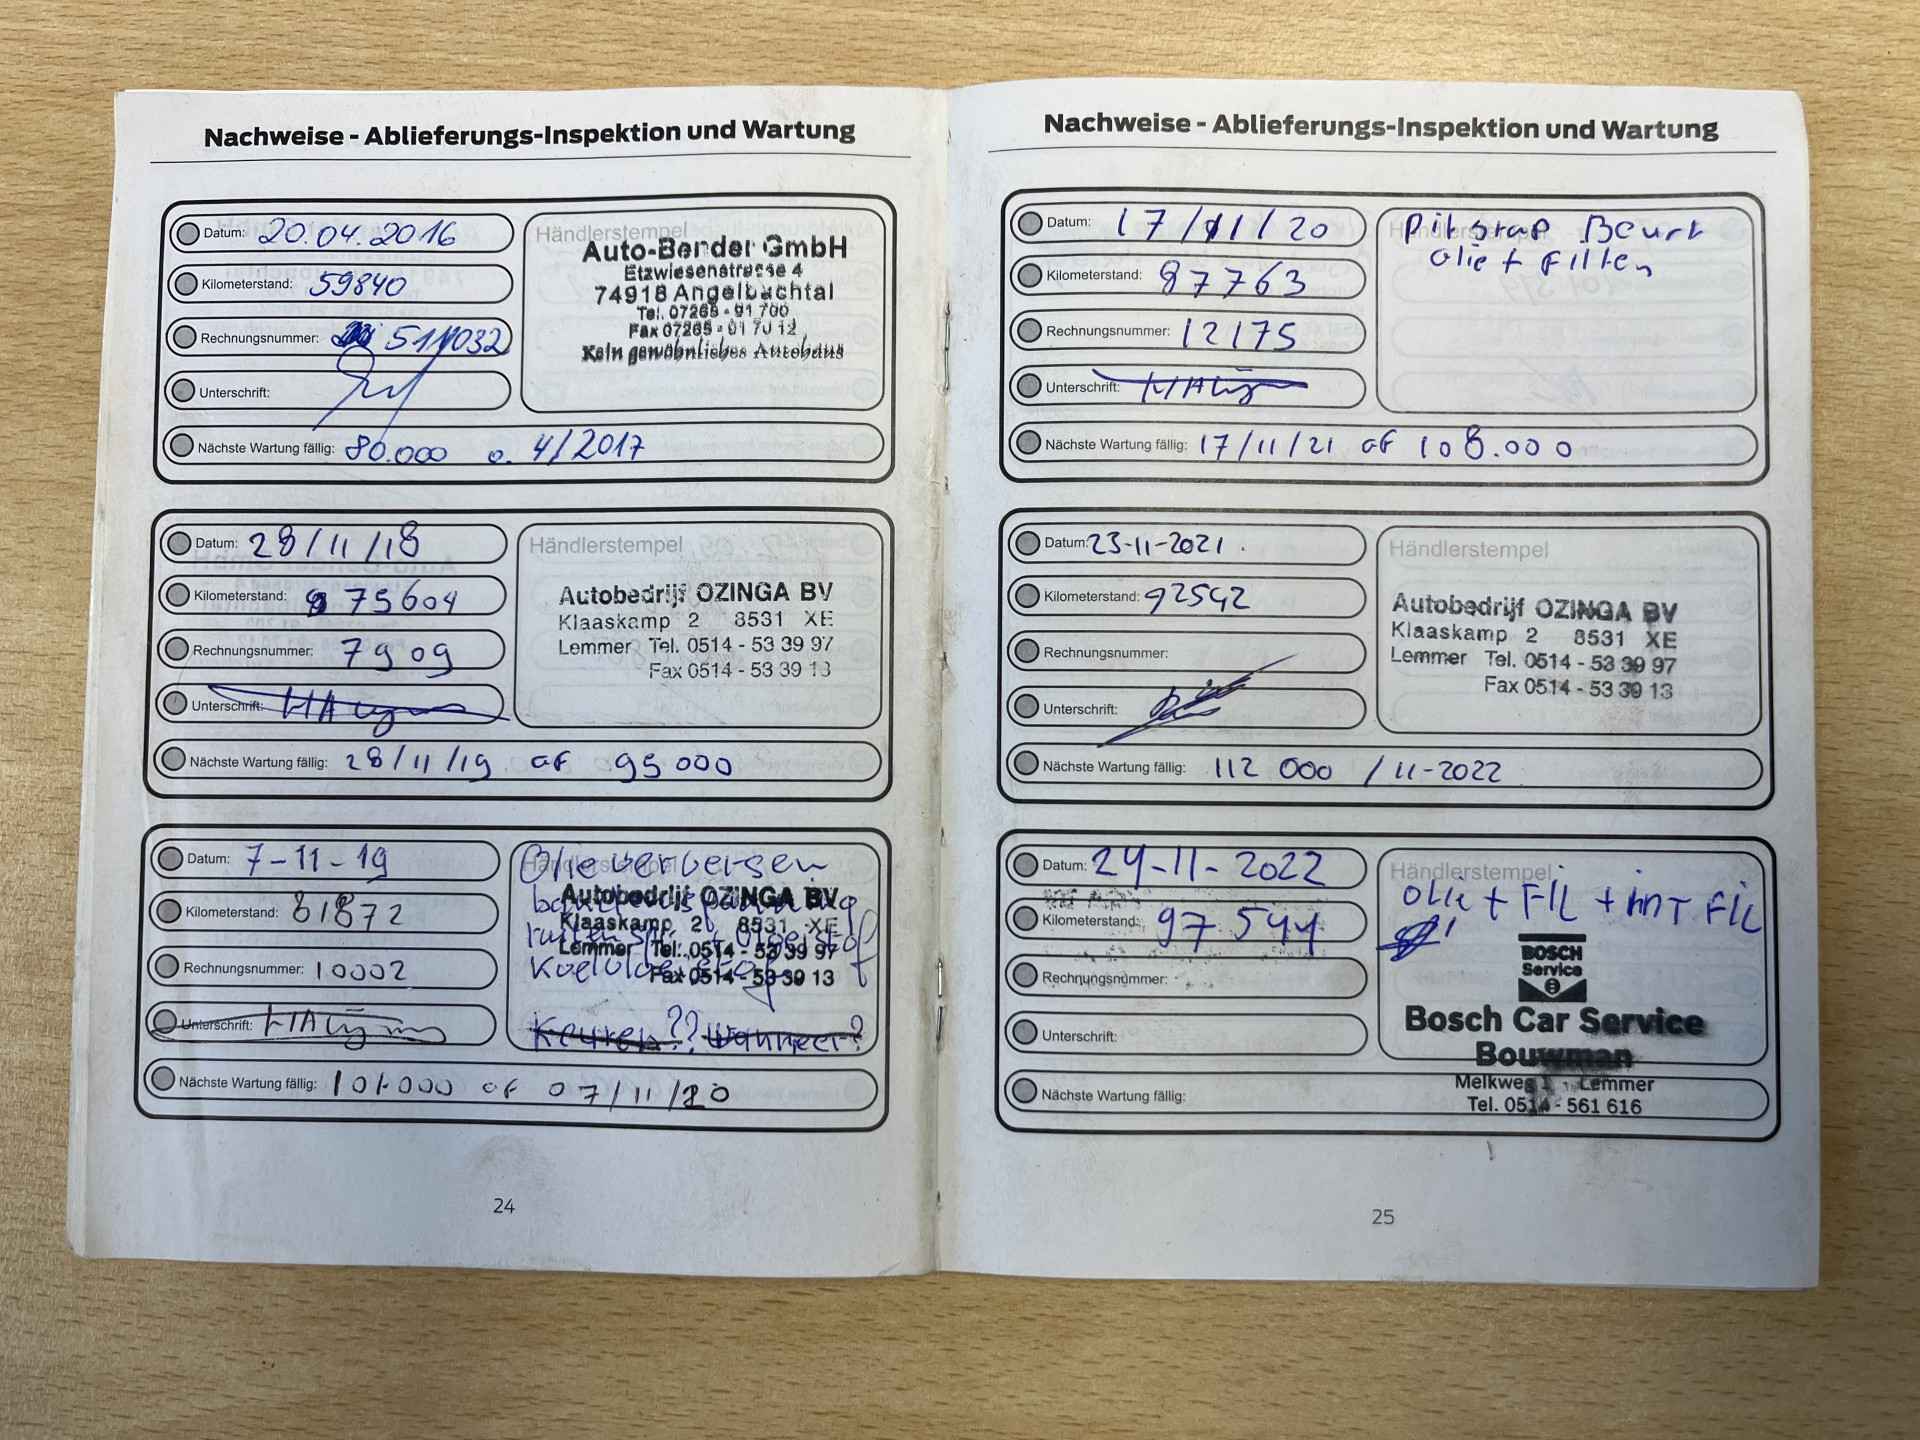 Nachweise - Ablieferungs-Inspektion und Wartung
Datum: 20.04.2016
Kilometerstand: 59840
Rechnungsnummer:
Unterschrift:
Nächste Wartung fällig: 80.000 o. 4/2017
Händlerstempel
Auto-Bender GmbH
Etzwiesenstrasse 4
74918 Angelbachtal
Tel. 07265 - 91 700
Fax 07265 - 91 70 12
Kein gewöhnliches Autohaus
Datum: 28/11/18
Kilometerstand: 75604
Rechnungsnummer: 7909
Unterschrift:
Nächste Wartung fällig: 28/11/19 of 95000
Händlerstempel
Autobedrijf OZINGA BV
Klaaskamp 2 8531 XE
Lemmer Tel. 0514 - 53 39 97
Fax 0514 - 53 39 13
Datum: 7-11-19
Kilometerstand: 81872
Rechnungsnummer: 10002
Unterschrift:
Nächste Wartung fällig: 101.000 of 07/11/20
Händlerstempel
Olie verversen
Autobedrijf OZINGA BV
Klaaskamp 2 8531 XE
Lemmer Tel. 0514 - 53 39 97
Fax 0514 - 53 39 13
Keuren?? Wanneer?
24
Nachweise - Ablieferungs-Inspektion und Wartung
Datum: 17/11/20
Kilometerstand: 87763
Rechnungsnummer: 12175
Unterschrift:
Nächste Wartung fällig: 17/11/21 of 108.000
Händlerstempel
Pitstop Beurt
olie + Filter
Datum: 23-11-2021.
Kilometerstand: 92542
Rechnungsnummer:
Unterschrift:
Nächste Wartung fällig: 112 000 / 11-2022
Händlerstempel
Autobedrijf OZINGA BV
Klaaskamp 2 8531 XE
Lemmer Tel. 0514 - 53 39 97
Fax 0514 - 53 39 13
Datum: 24-11-2022
Kilometerstand: 97544
Rechnungsnummer:
Unterschrift:
Nächste Wartung fällig:
Händlerstempel
olie + FIL + inT FIL
BOSCH
Service
Bosch Car Service
Bouwman
Melkweg Lemmer
Tel. 0514 - 561 616
25